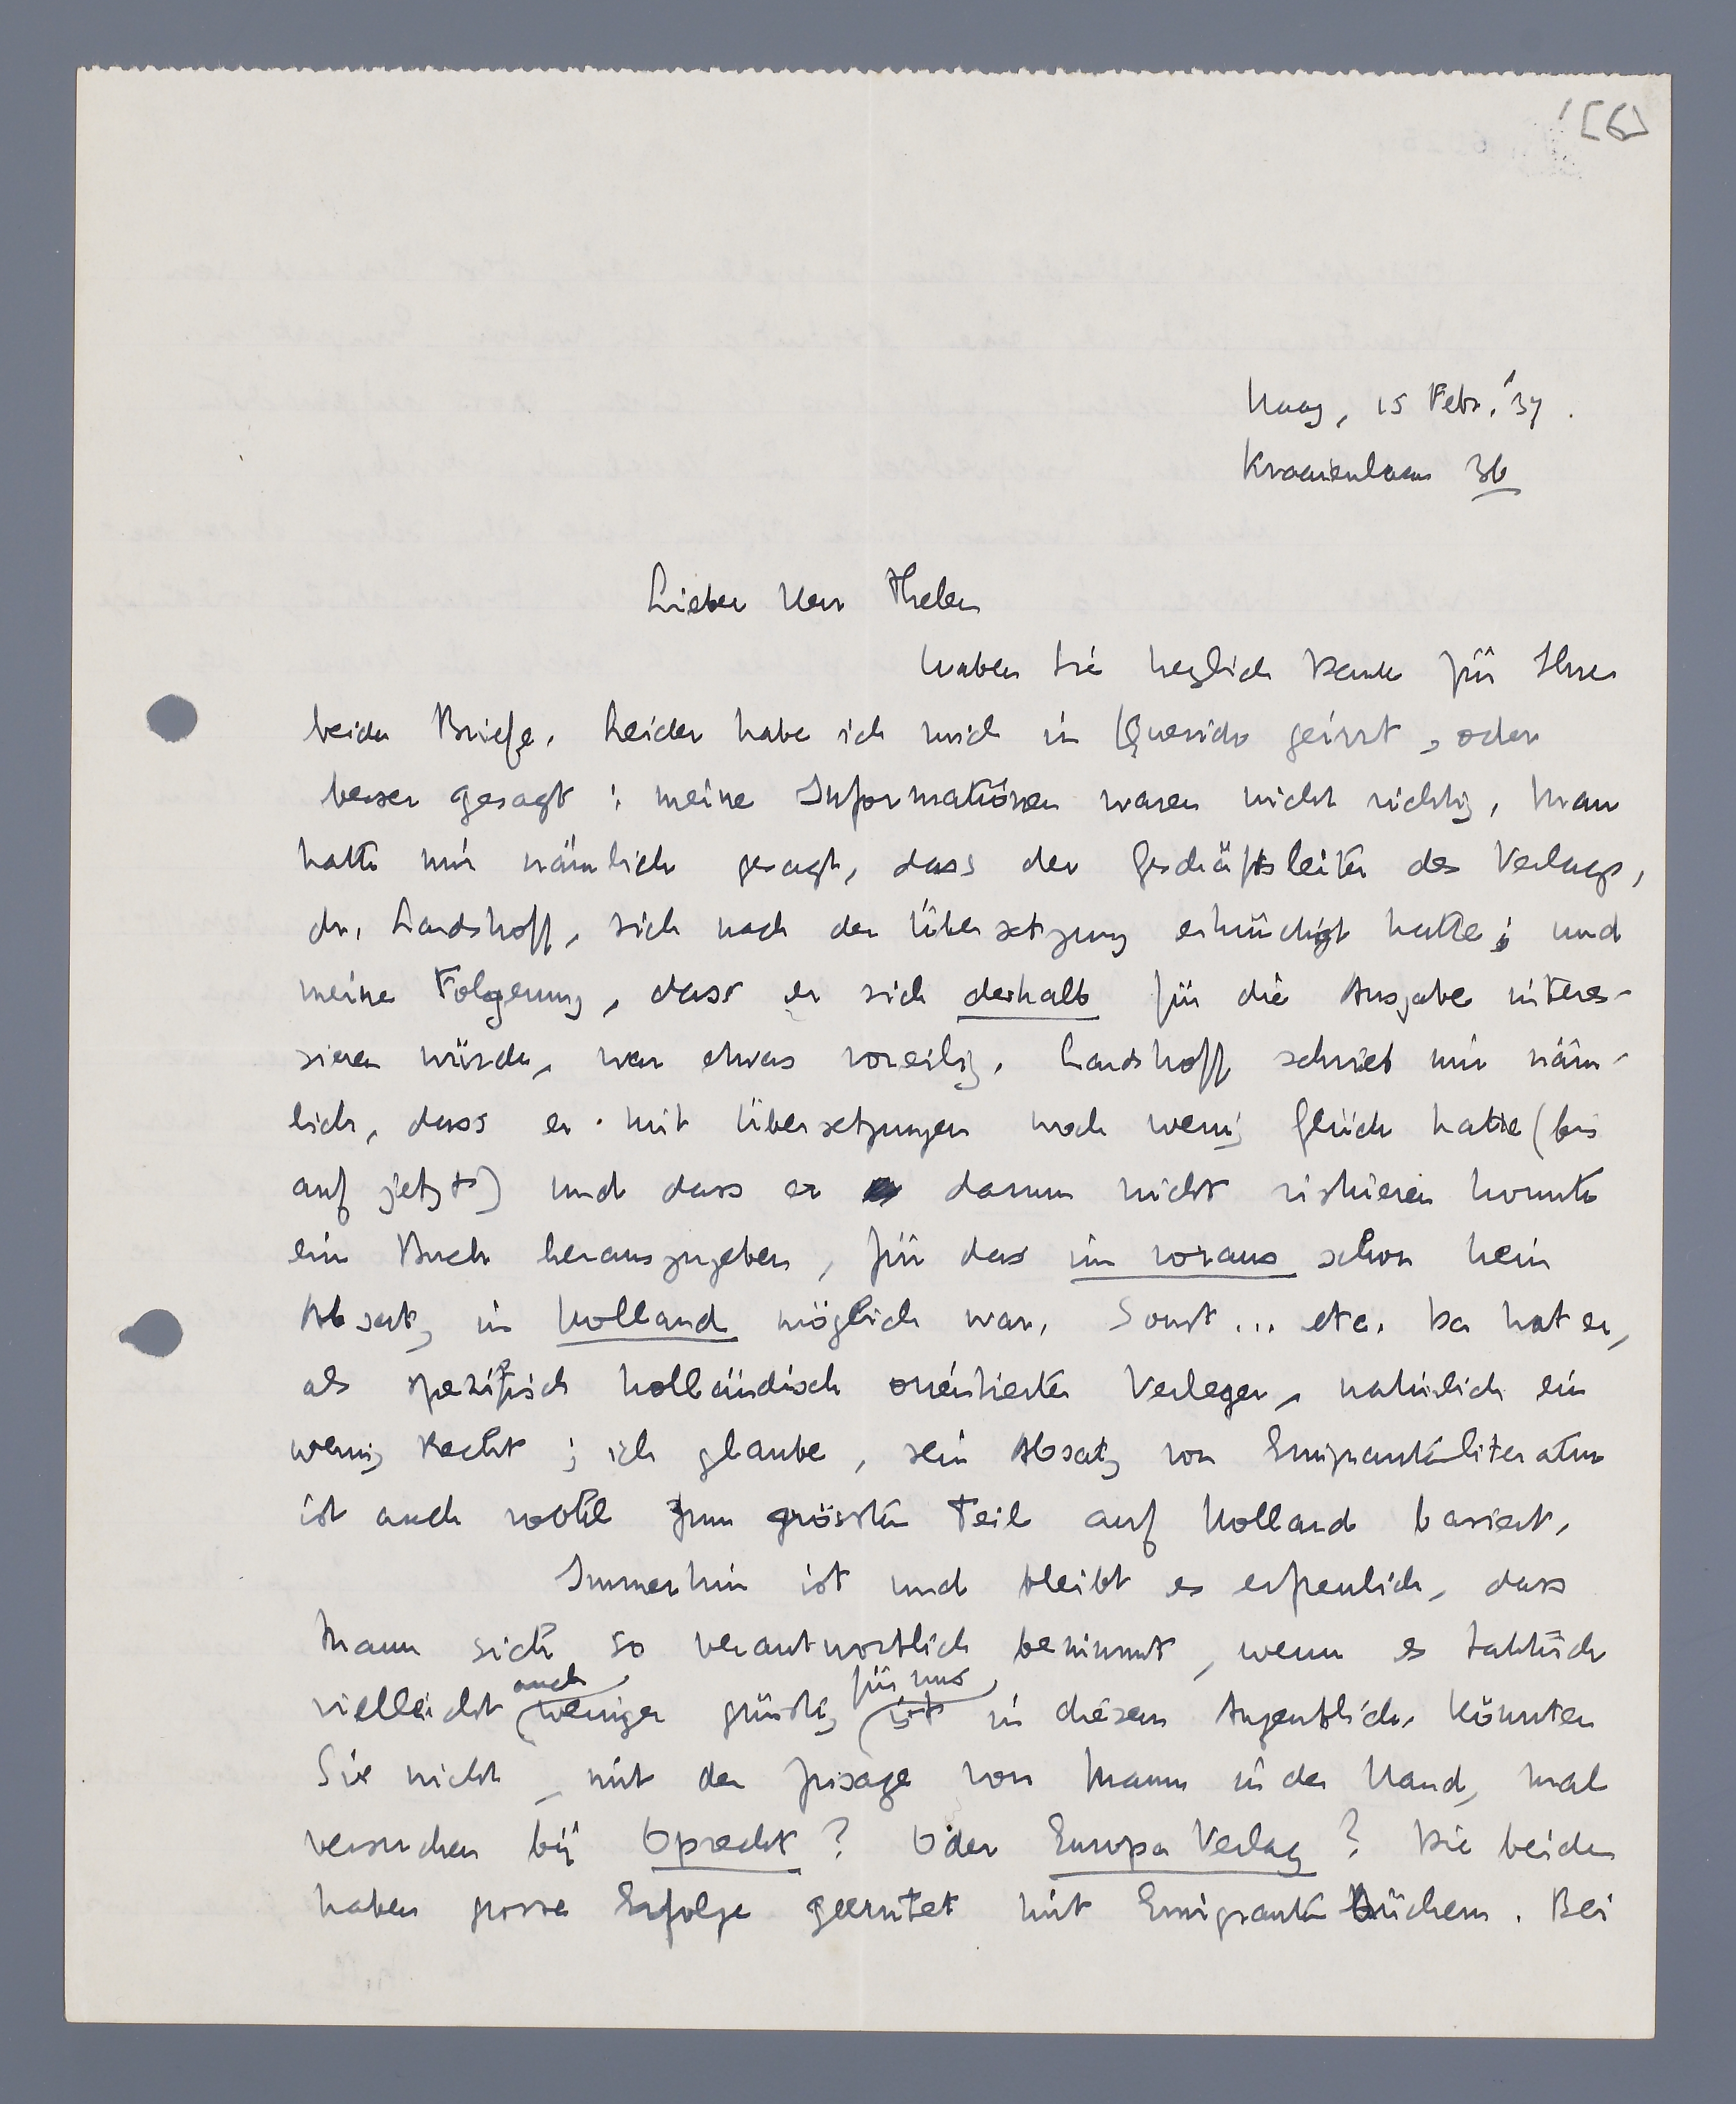 [6]
Haag, 15 Febr. '37.
Kraaienlaan 36
Lieber Herr Thelen
haben Sie herzlich Dank für Ihre
beiden Briefe. Leider habe ich mich in Querido geirrt, oder
besser gesagt: meine Informationen waren nicht richtig. Man
hatte mir nämlich gesagt, dass der Geschäftsleiter des Verlags,
dr. Landshoff, sich nach der Übersetzung erkündigt hatte; und
meine Folgerung, dass er sich deshalb für die Ausgabe interes-
sieren würde, war etwas voreilig. Landshoff schrieb mir näm-
lich, dass er mit Übersetzungen noch wenig Glück hatte (bis
auf jetzt) und dass er darum nicht riskieren konnte
ein Buch herauszugeben, für das im voraus schon kein
Absatz in Holland möglich war. Sonst... etc. Da hat er,
als spezifisch holländisch orientierter Verleger, natürlich ein
wenig Recht; ich glaube, sein Absatz von Emigrantenliteratur
ist auch wohl zum grössten Teil auf Holland basiert.
Immerhin ist und bleibt es erfreulich, dass
Mann sich so verantwortlich benimmt, wenn es taktisch
vielleicht auch weniger günstig für uns ist in diesem Augenblick. Könnten
Sie nicht, mit der préface von Mann in der Hand, mal
versuchen bij Oprecht? Oder Europa Verlag? Die beiden
haben grosse Erfolge geerntet mit Emigrantenbüchern. Bei